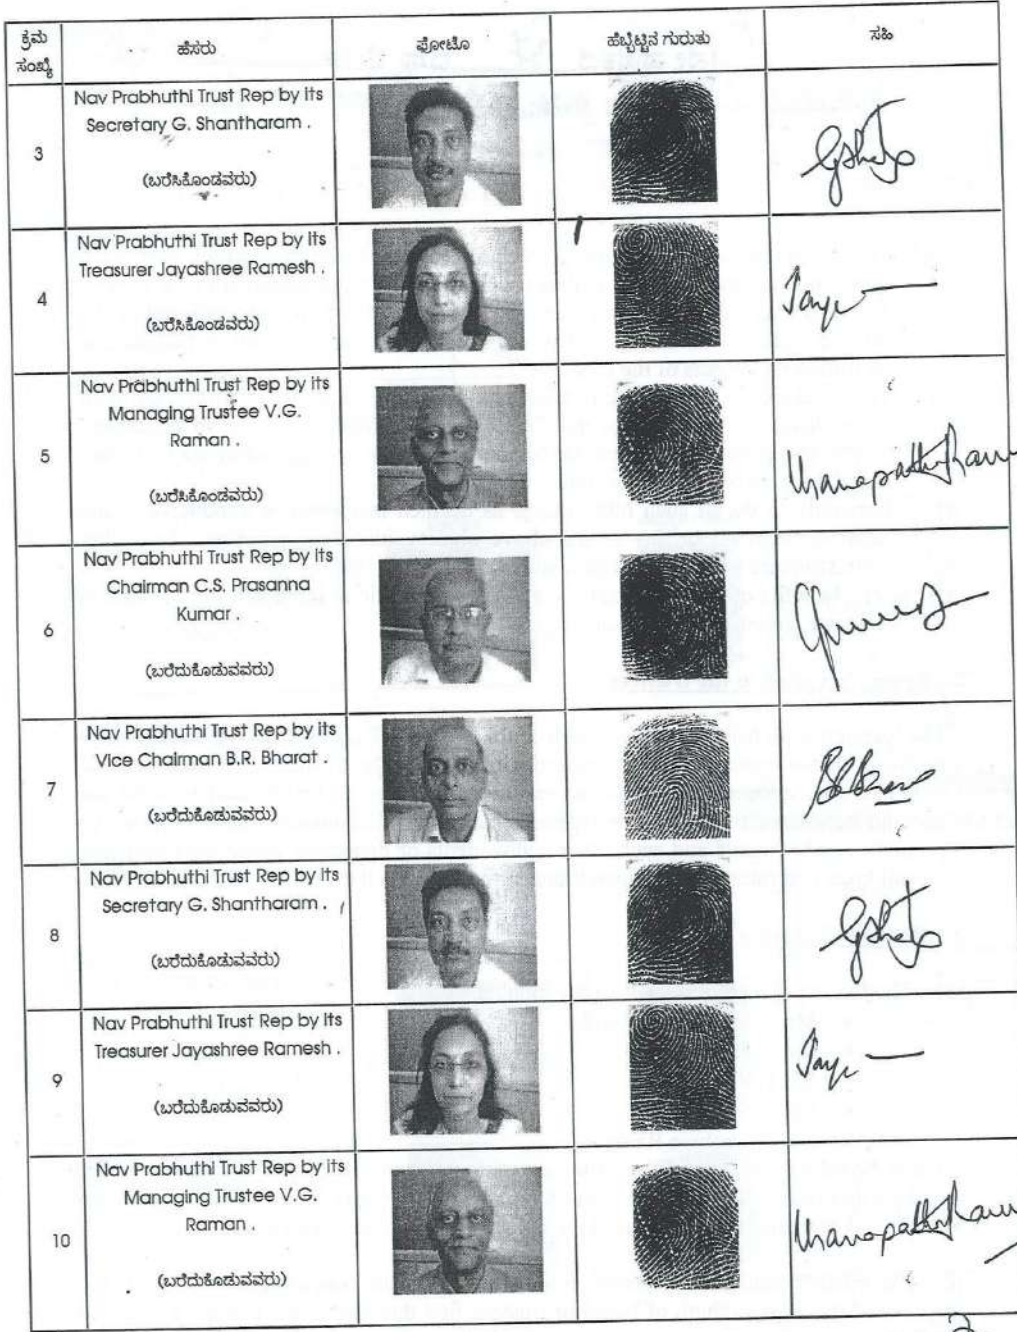 ಕ್ರಮ ಸಂಖ್ಯೆ ಹೆಸರು ಫೋಟೊ ಹೆಬ್ಬೆಟ್ಟಿನ ಗುರುತು ಸಹಿ
3
Nav Prabhuthi Trust Rep by its
Secretary G. Shantharam .
(ಬರೆಸಿಕೊಂಡವರು)
4
Nav Prabhuthi Trust Rep by its
Treasurer Jayashree Ramesh .
(ಬರೆಸಿಕೊಂಡವರು)
5
Nav Prabhuthi Trust Rep by its
Managing Trustee V.G.
Raman .
(ಬರೆಸಿಕೊಂಡವರು)
6
Nav Prabhuthi Trust Rep by its
Chairman C.S. Prasanna
Kumar .
(ಬರೆದುಕೊಡುವವರು)
7
Nav Prabhuthi Trust Rep by its
Vice Chairman B.R. Bharat .
(ಬರೆದುಕೊಡುವವರು)
8
Nav Prabhuthi Trust Rep by its
Secretary G. Shantharam .
(ಬರೆದುಕೊಡುವವರು)
9
Nav Prabhuthi Trust Rep by its
Treasurer Jayashree Ramesh .
(ಬರೆದುಕೊಡುವವರು)
10
Nav Prabhuthi Trust Rep by its
Managing Trustee V.G.
Raman .
(ಬರೆದುಕೊಡುವವರು)